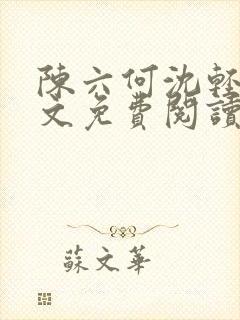 陳六何沈輕
文免費閱讀
蘇文華